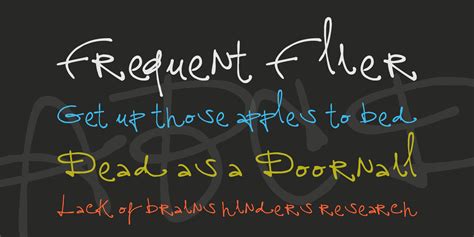 Frequent Flier
Get up those apples to bed
Dead as a Doornail
Lack of brains hinders research